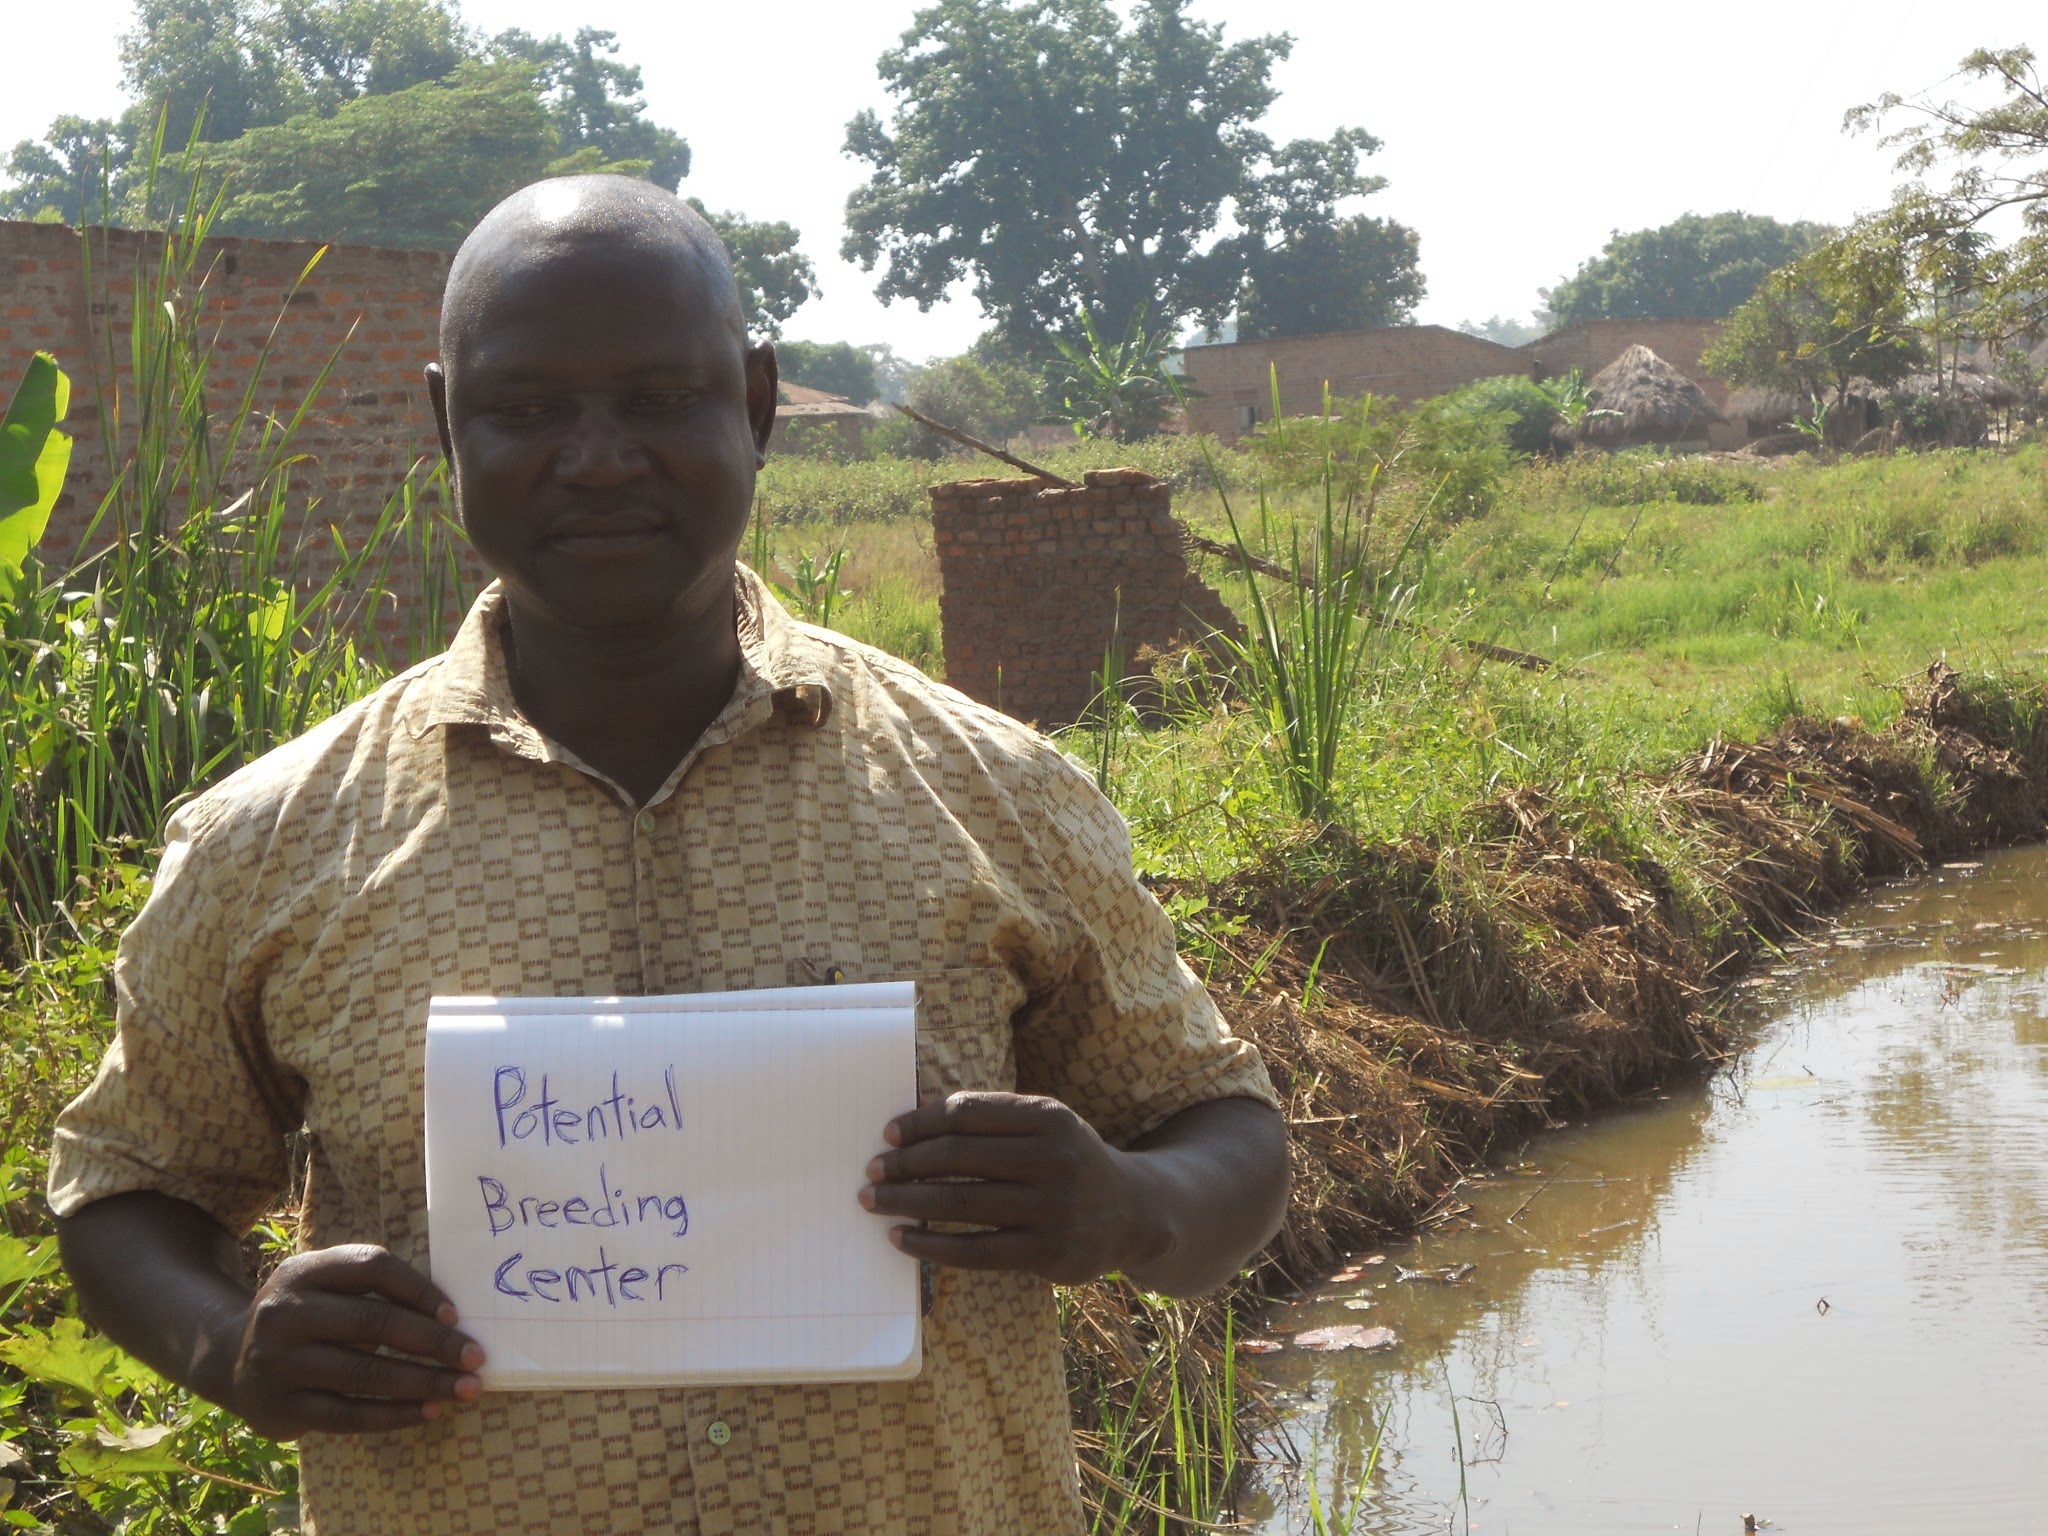 Potential
Breeding
Center